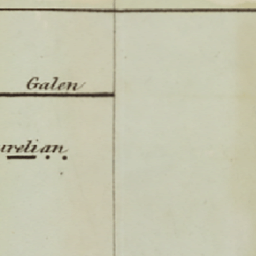 Galen
urelian